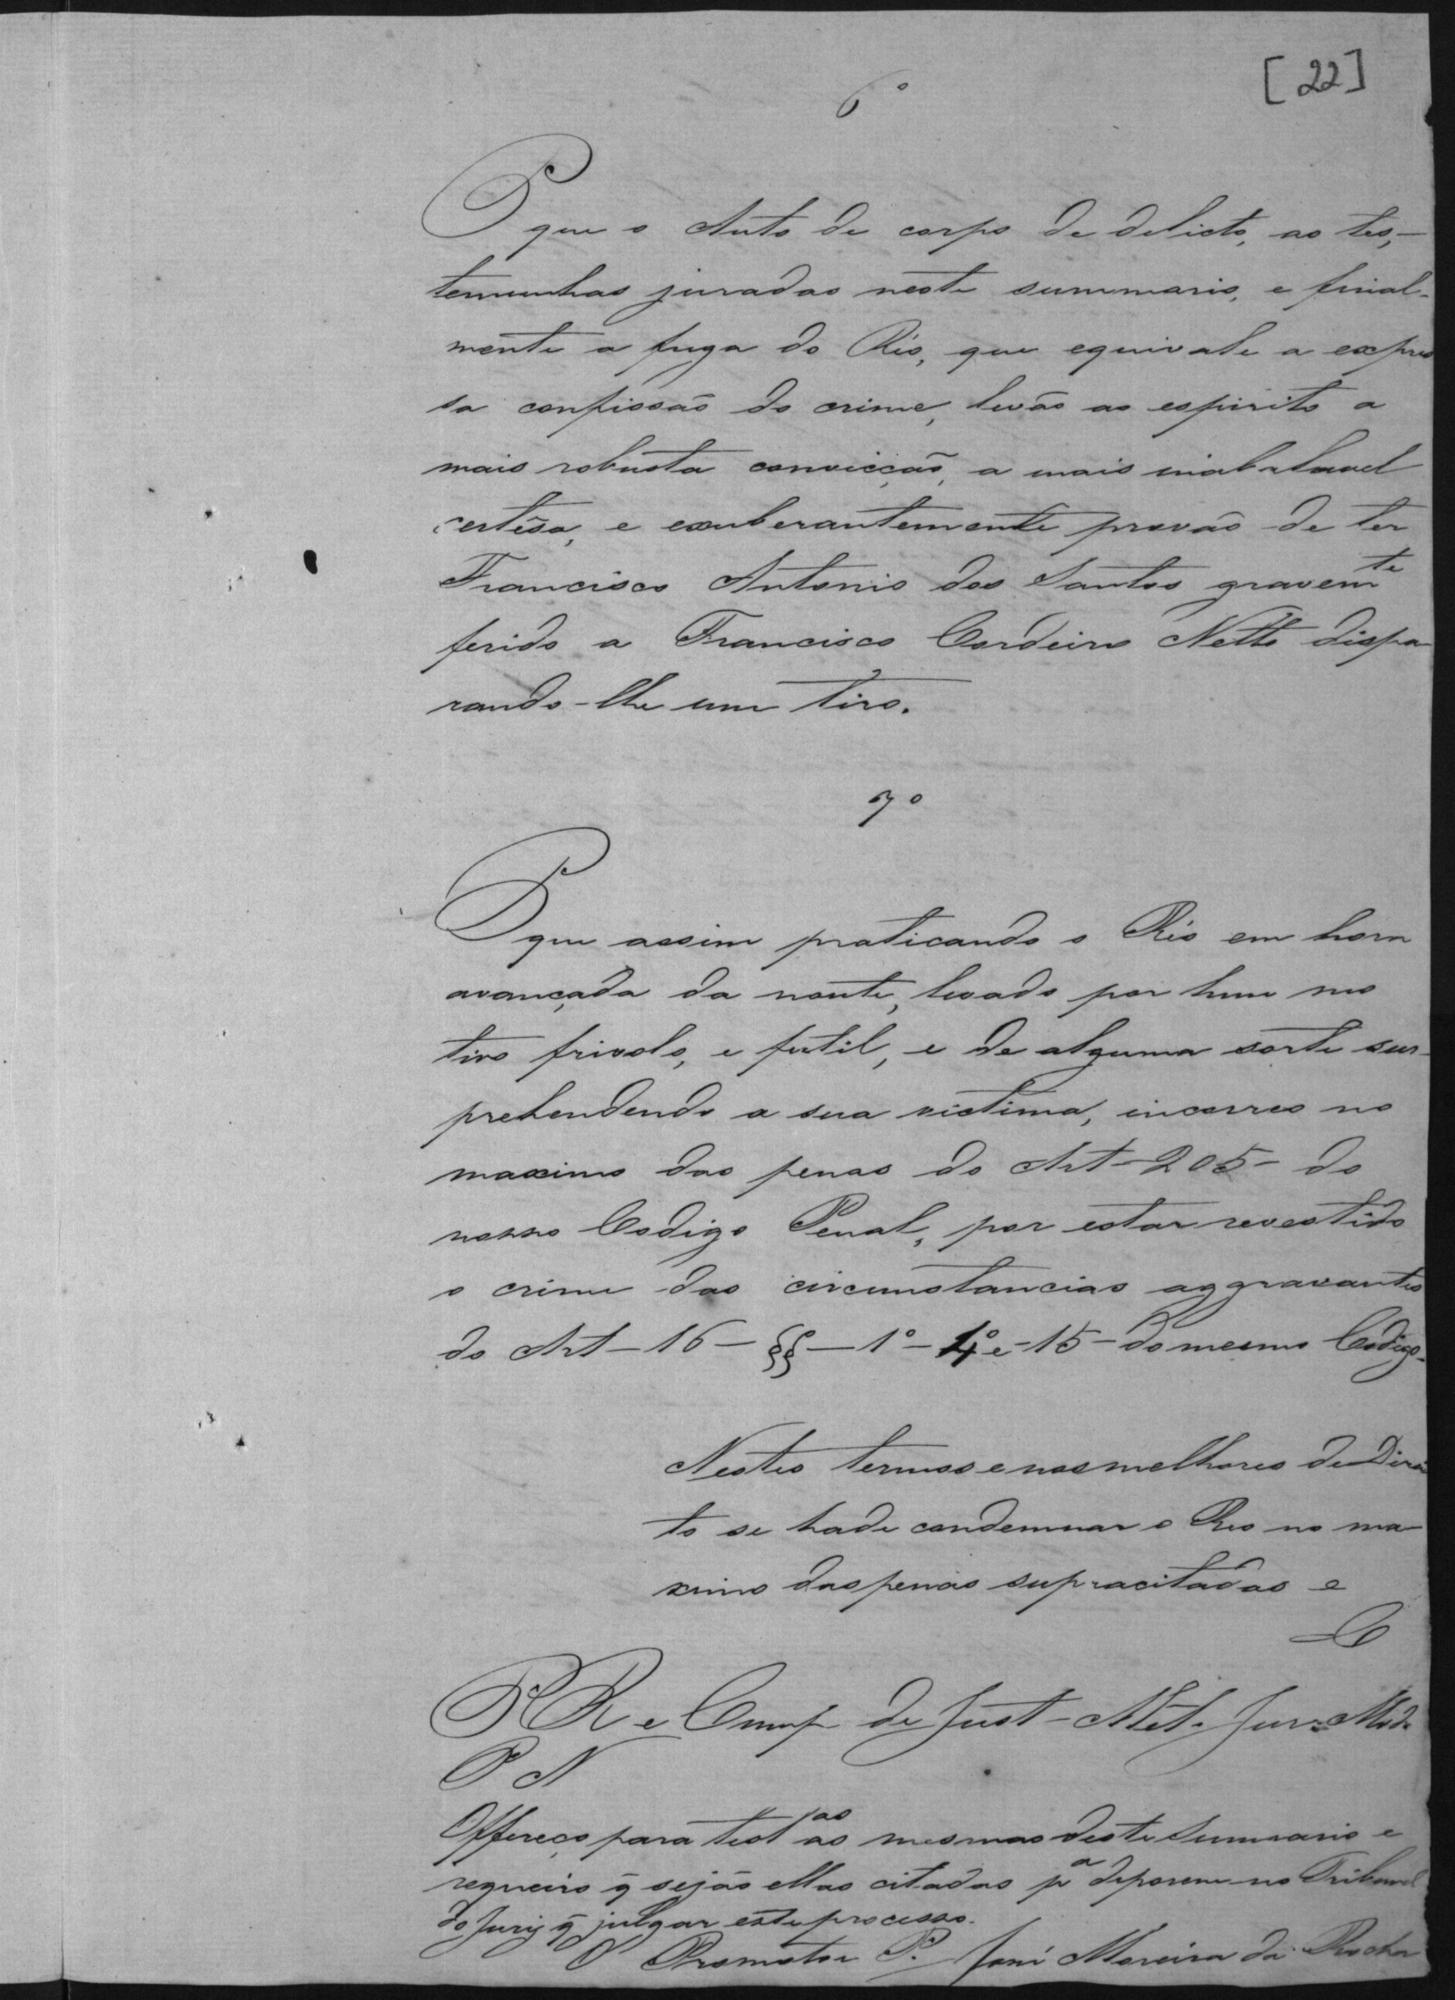 [22]
6º
P que o Auto de corpo de delicto, as tes,-
temunhas juradas neste summario, e final-
mente a fuga do Réo, que equivale a expres
sa confissão do crime, levão ao espirito a
mais robusta convicção, a mais inabalavel
certêsa, e exuberantemente provão de ter
Francisco Antonio dos Santos gravemte
ferido a Francisco Cordeiro Netto dispa
rando-lhe um tiro.
7º
P que assim praticando o Réo em hora
avançada da noute, levado por hum mo
tivo frivolo, e futil, e de alguma sorte sur-
prehendendo a sua victima, incorreo no
maximo das penas do Art-205- do
nosso Codigo Penal, por estar revestido
o crime das circumstancias aggravantes
do Art-16-§§-1º-4º e-15-do mesmo Codigo.
Nestes termos e nos melhores de Direi
to se hade condemnar o Reo no ma-
ximo das penas supracitadas e
C
P R e Cump de Just-
P N
Offereço para test as as mesmas deste Summario e
requeiro q̃ sejão ellas citadas pª deporem no Tribunal
do Jury q̃ julgar este processo.
O Promotor P. José Moreira da Rocha